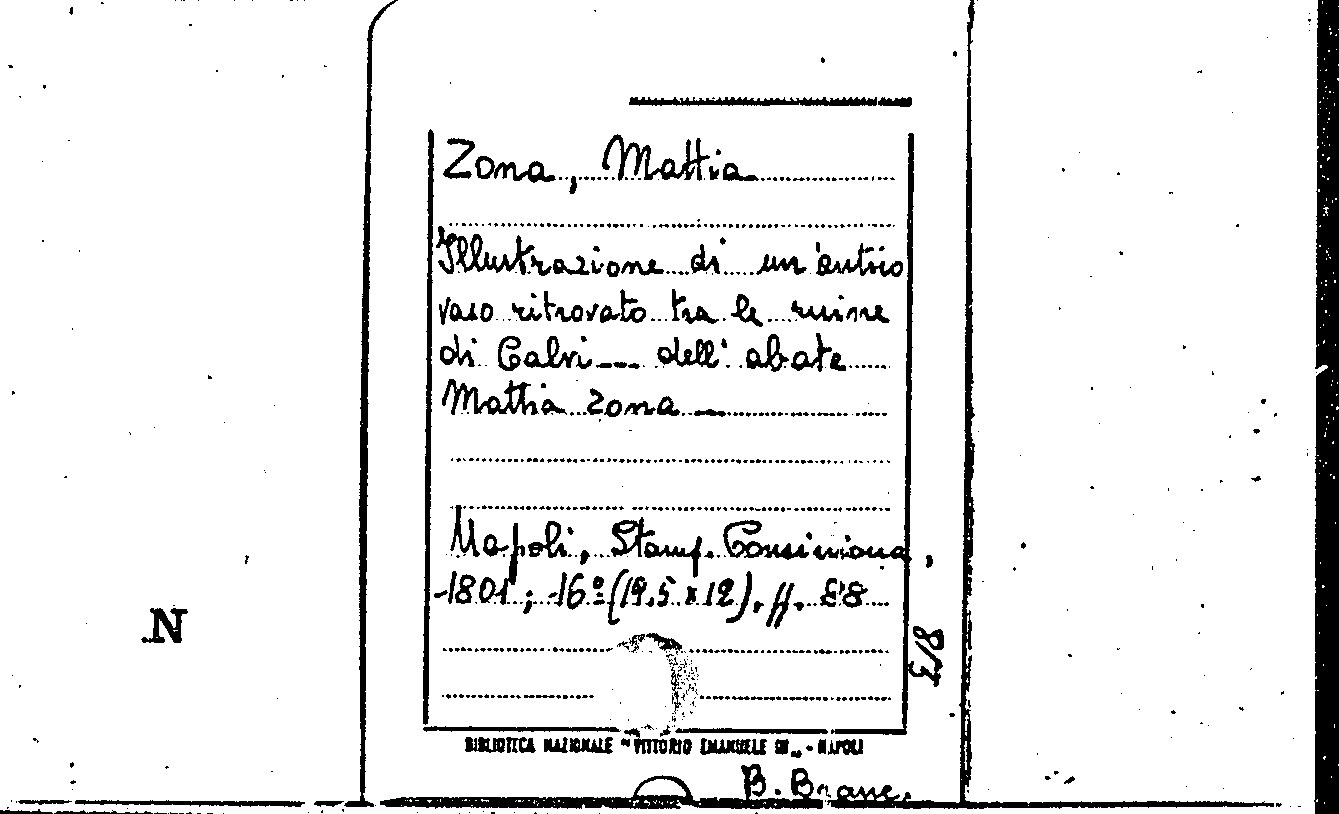 Zona, Mattia
Illustrazione di un'antico
vaso ritrovato tra le ruine
di Calvi ___ dell'abate
Mattia Zona __
Napoli, Stamp.
1801; 16º (19.5 x 12). ff. 88
N
BIBLIOTECA NAZIONALE "VITTORIO EMANUELE III„ - NAPOLI
B. Branc.